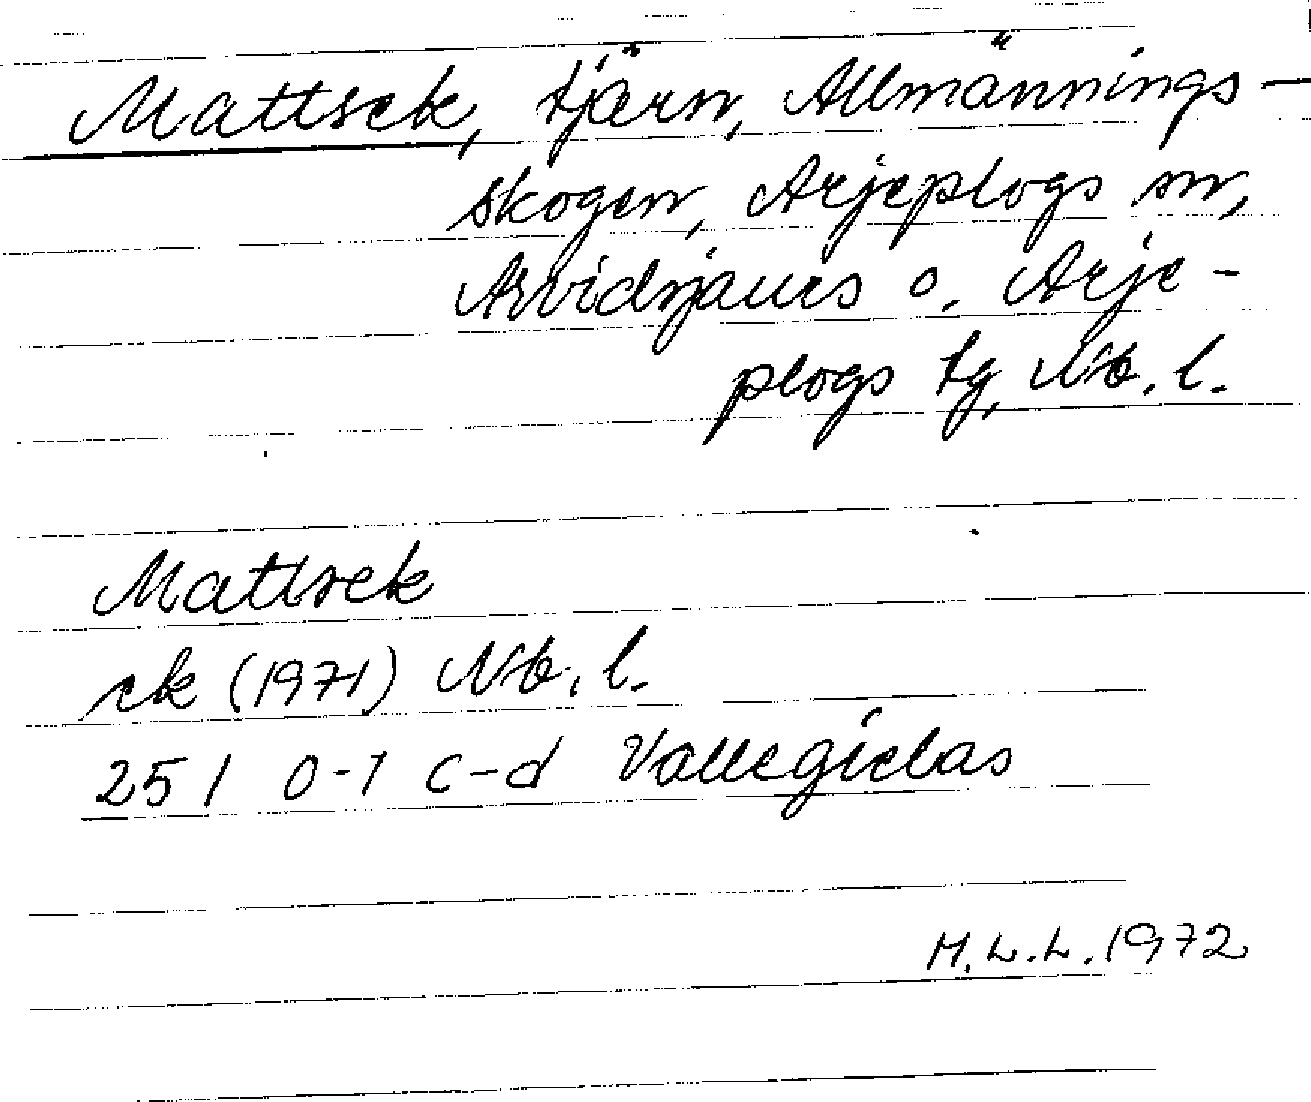 Mattsek, tjärn, Allmännings-
skogen, Arjeplogs sn,
Arvidsjaurs o. Arje-
plogs tg, Nb. l.
Mattsek
ek (1971) Nb. l.
251 0-1 c-d Vallegielas
H.L.L. 1972